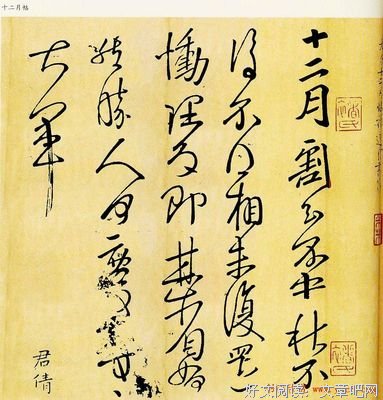 十二月帖
十二月割至不中秋不
復不得相未復還
慟理為即甚省如
然勝人何慶等
大軍
君倩
好文阅读: 文章吧网